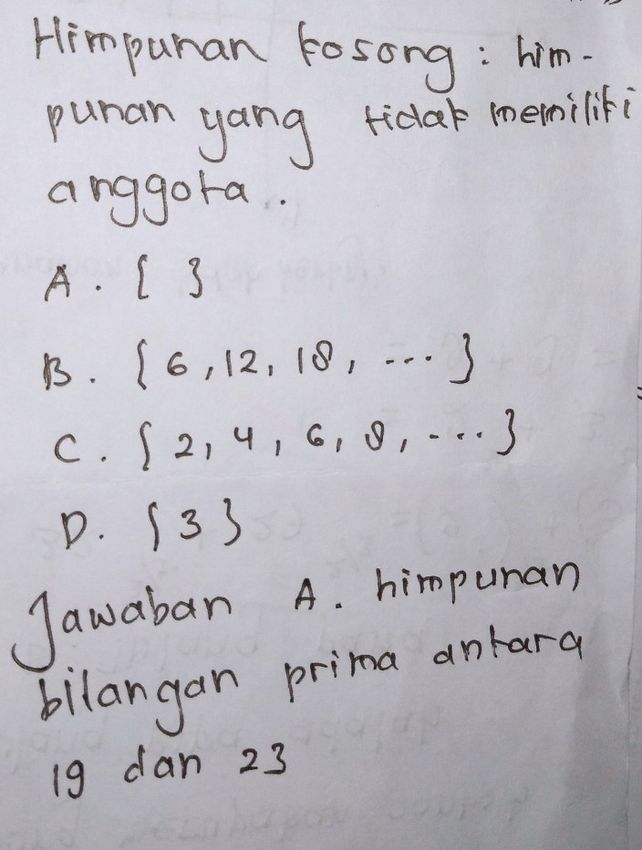 Himpunan kosong : him-
punan yang tidak memiliki
anggota.
A. { }
B. {6, 12, 18, ...}
C. {2, 4, 6, 8, ...}
D. {3}
Jawaban A. himpunan
bilangan prima antara
19 dan 23